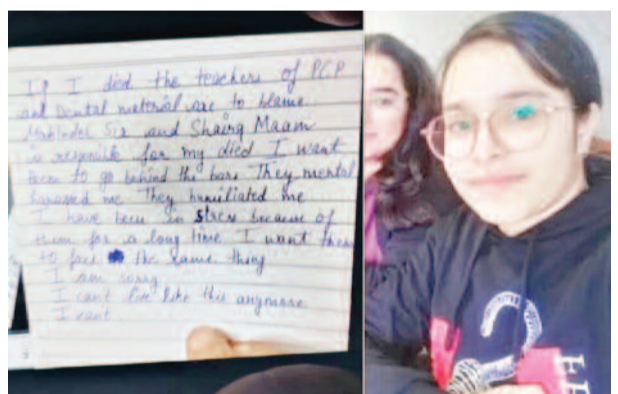 If I died the teachers of PCP
and Dental material are to blame.
Sir and Maam
is responsible for my died I want
them to go behind the bars They mental
harassed me They humiliated me
I have been in stress because of
them for a long time I want them
to face the same thing
I am sorry
I can't live like this anymore
I cant